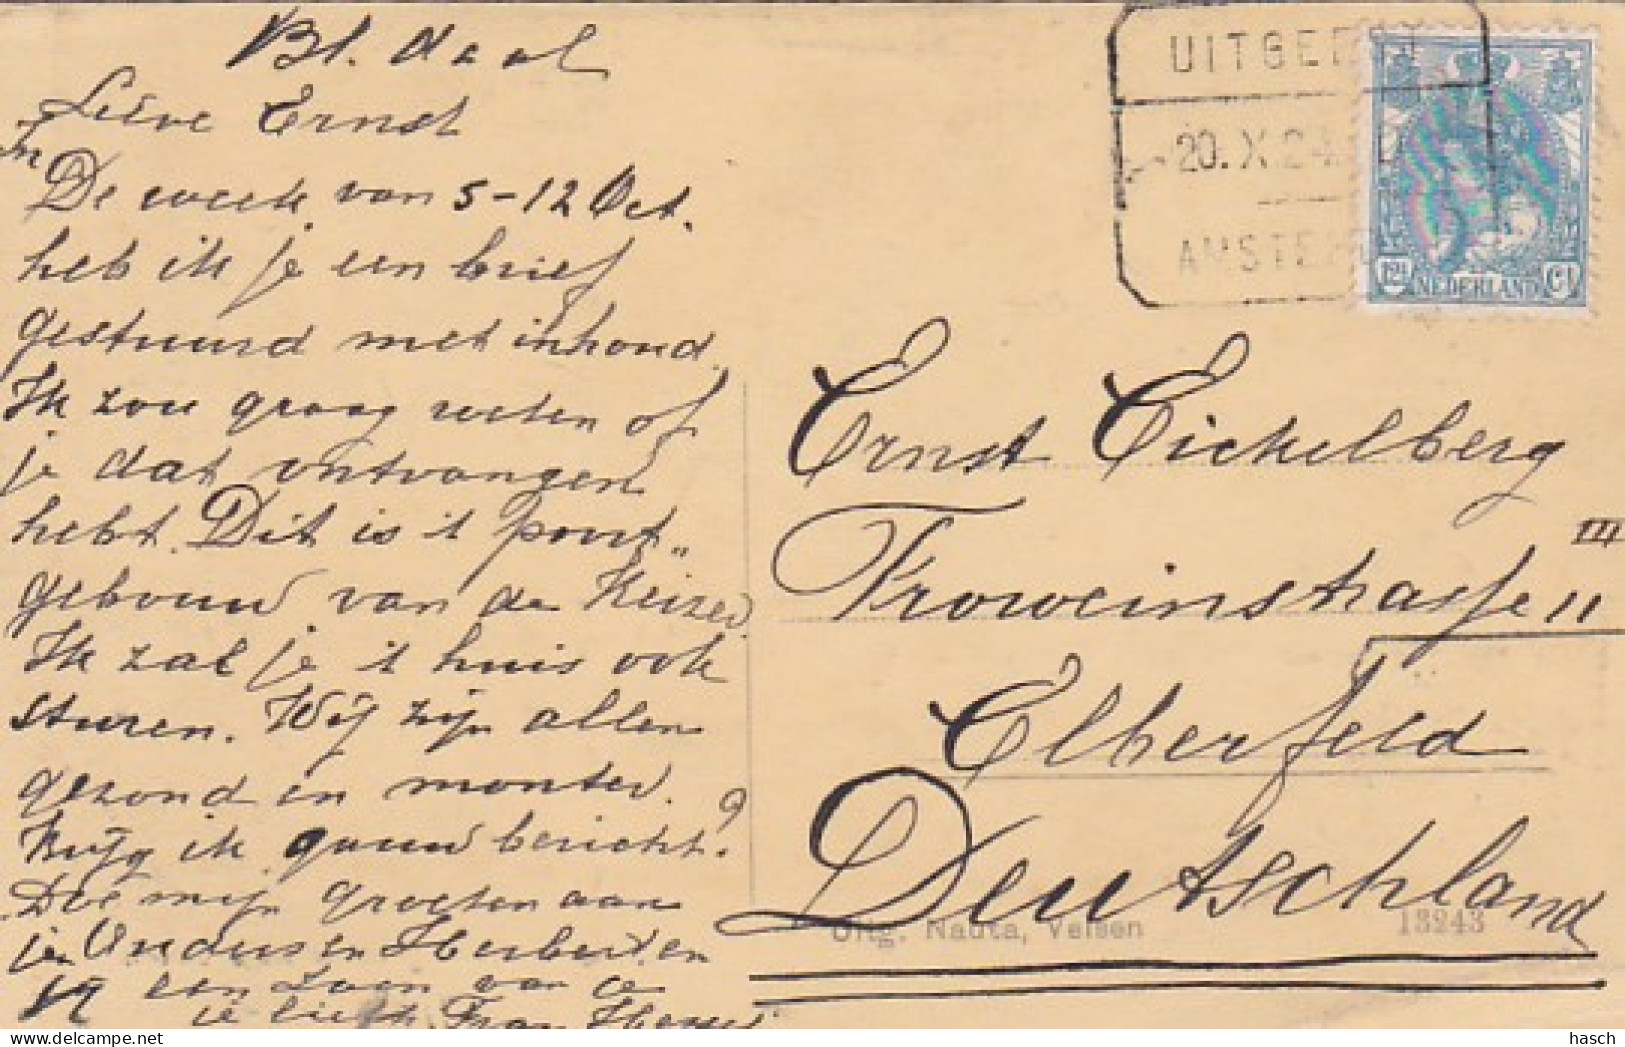 Bl. daal
Lieve Ernst
De week van 5-12 Oct.
heb ik je een brief
gestuurd met inhoud.
Ik zou graag weten of
je dat ontvangen
hebt. Dit is 't post-
gebouw van de Keizer
Ik zal je 't huis ook
sturen. Wij zijn allen
gezond en monter.
Krijg ik gauw bericht?
Doe mijn groeten aan
je Ouders en Herbert en
een zoen van je
je liefh.
UITGEE
20.X.24
AMSTE
12½ NEDERLAND Ct
Ernst Eickelberg
Froweinstrasse 11 III
Elberfeld
Deutschland
Uitg. Nauta, Velsen 13243
hasch